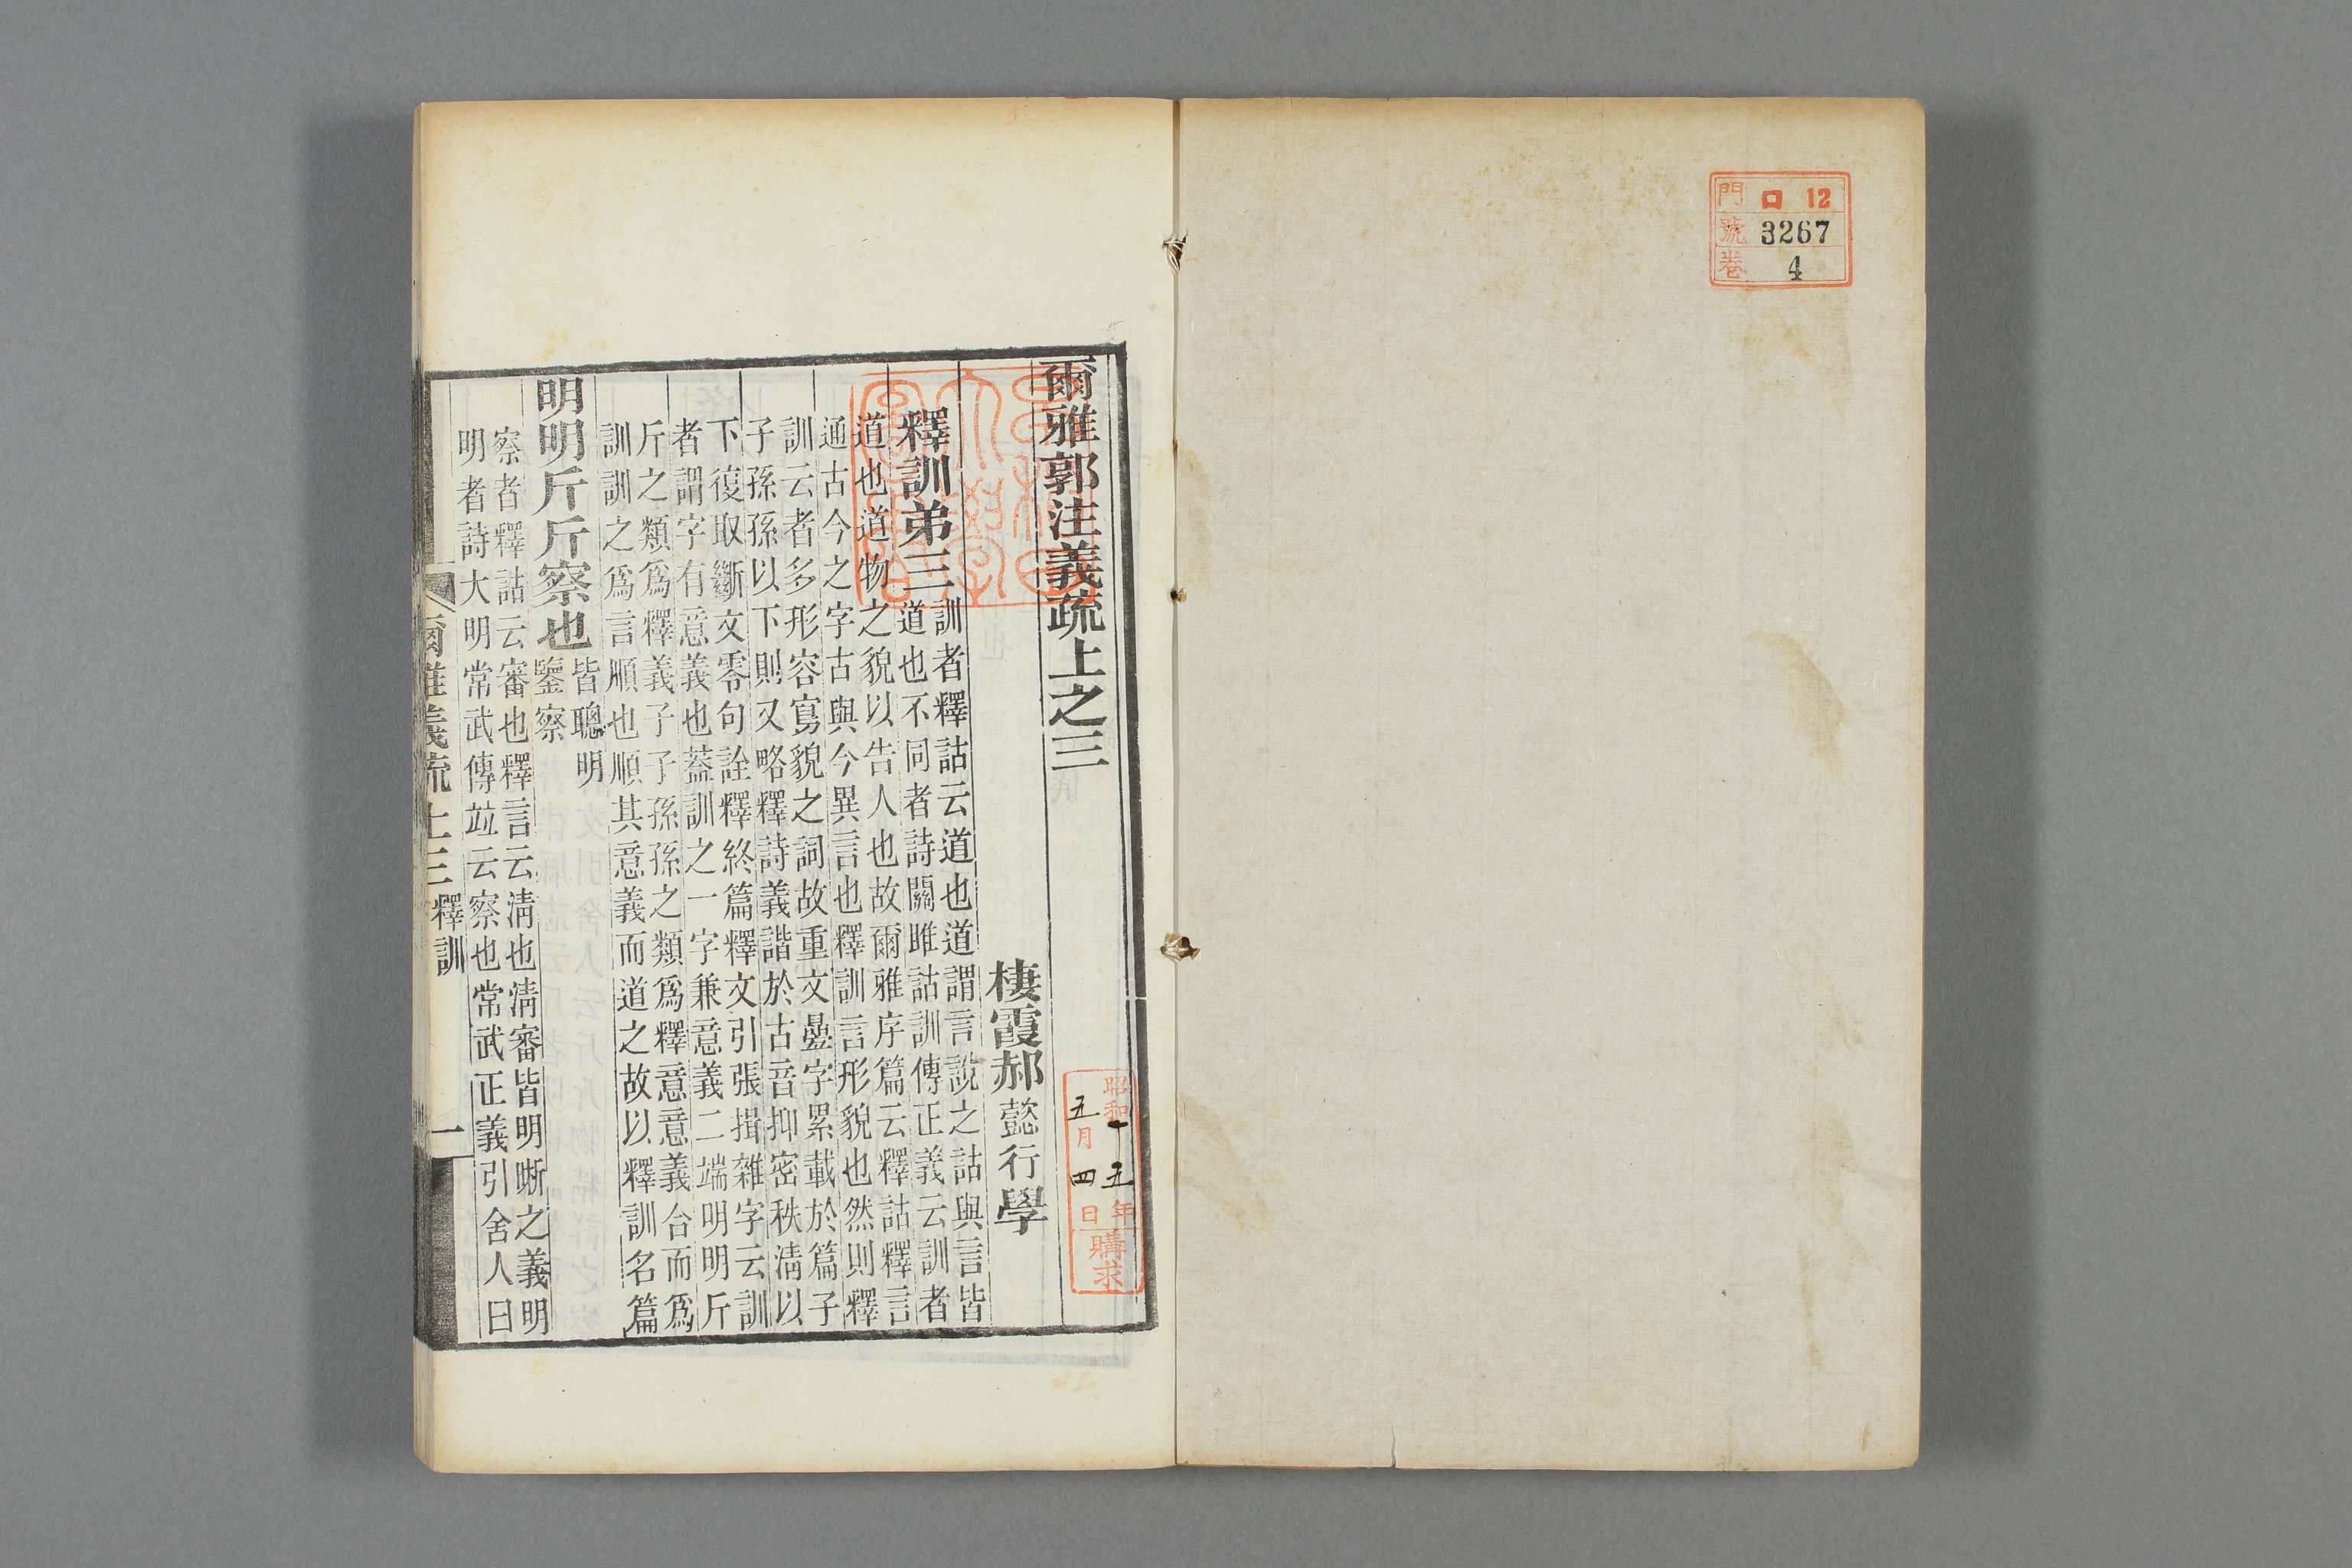 門 ロ 12
號 3267
卷 4
爾雅郭注義疏上之三
昭和一五年
五月四日
購求
棲霞郝懿行學
釋訓弟三
訓者釋詁云道也道謂言說之詁與言皆
道也不同者詩關雎詁訓傳正義云訓者
道也道物之貌以告人也故爾雅序篇云釋詁釋言
通古今之字古與今異言也釋訓言形貌也然則釋
訓云者多形容寫貌之詞故重文疊字累載於篇子
子孫孫以下則又略釋詩義諧於古音抑密秩清以
下復取斷文零句詮釋終篇釋文引張揖雜字云訓
者謂字有意義也葢訓之一字兼意義二端明明斤
斤之類爲釋義子子孫孫之類爲釋意意義合而爲
訓訓之爲言順也順其意義而道之故以釋訓名篇
明明斤斤察也
皆聰明
鑒察
察者釋詁云審也釋言云清也清審皆明晰之義明
明者詩大明常武傳竝云察也常武正義引舍人曰
爾雅義疏上三 釋訓 一